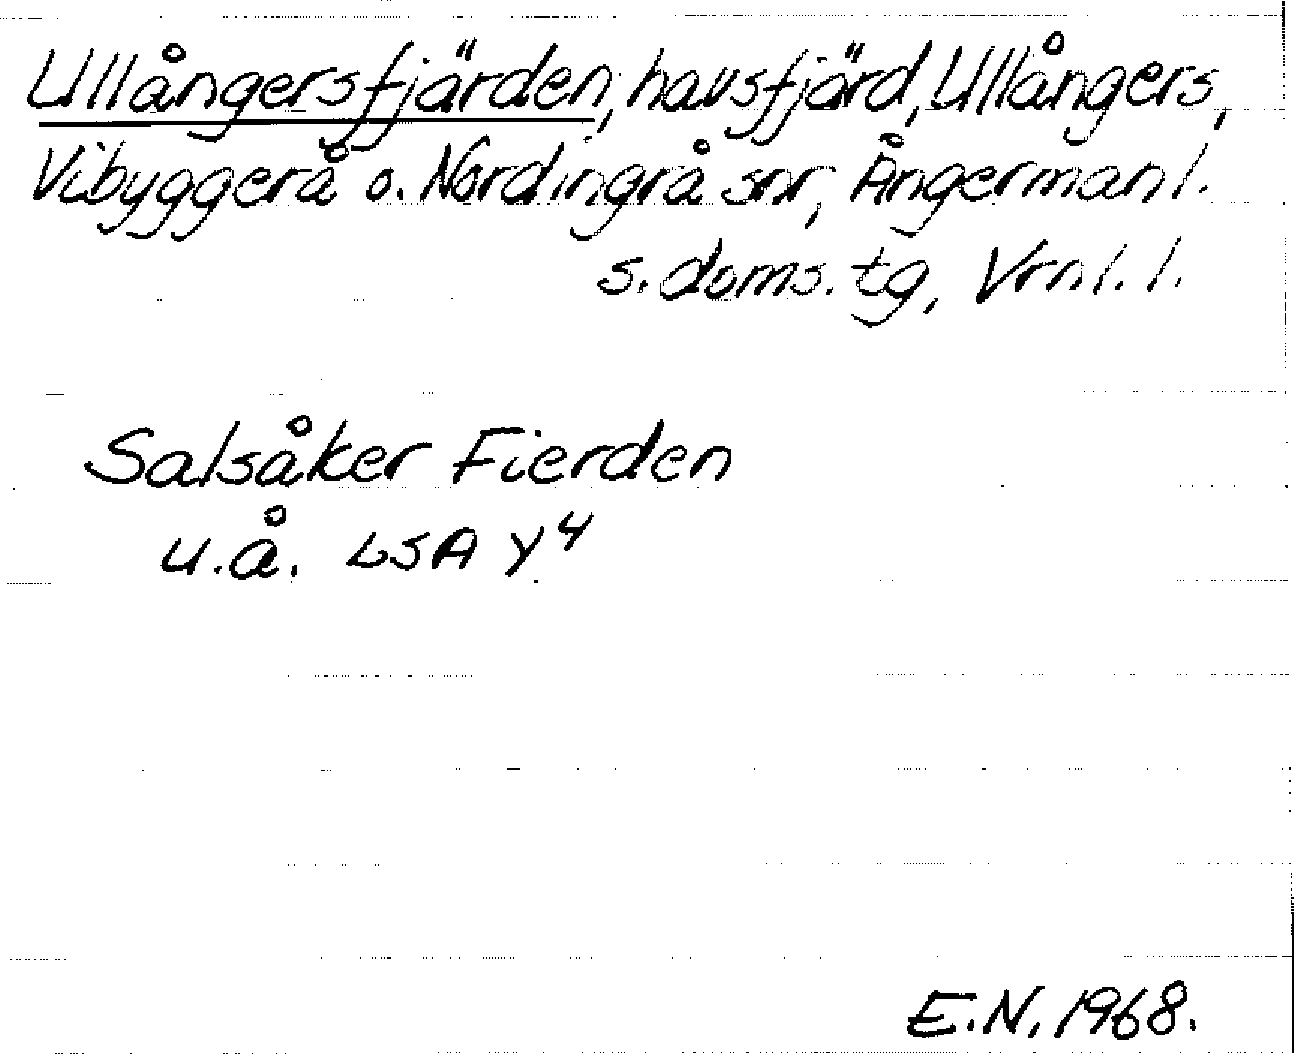 Ullångersfjärden, havsfjärd, Ullångers,
Vibyggerå o. Nordingrå snr, Ångermanl.
s. doms. tg, Vrnl. l.
Salsåker Fierden
u.å. LSA Y4
E.N. 1968.